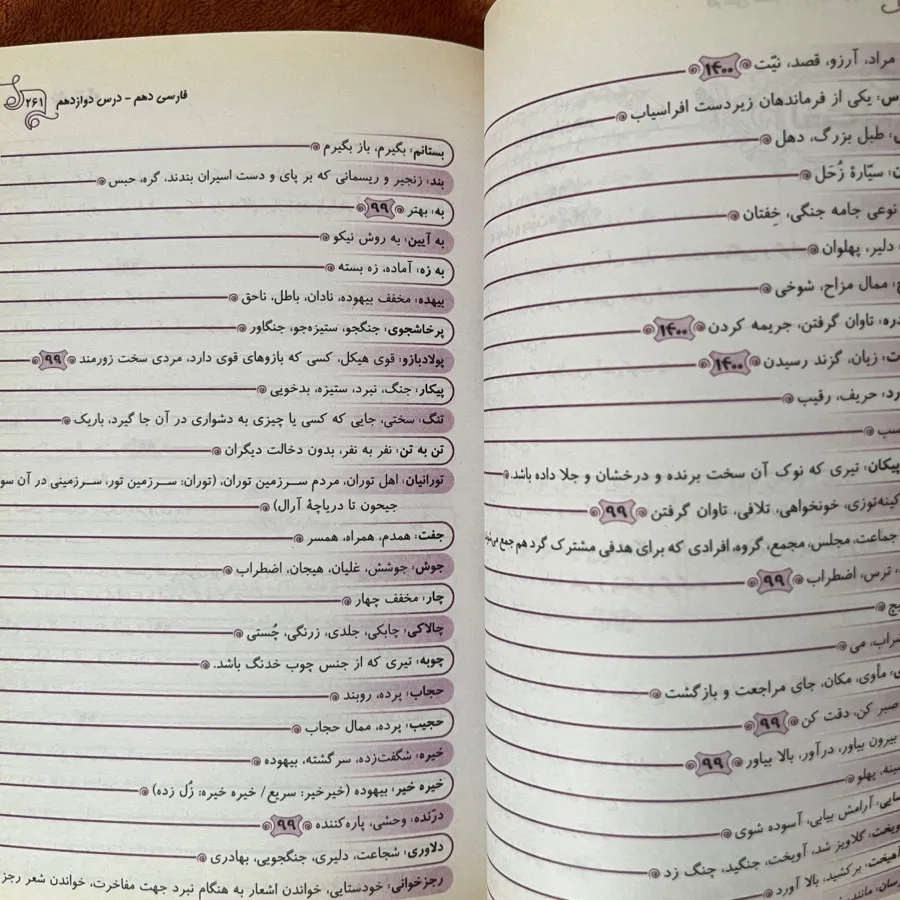 مراد، آرزو، قصد، نیّت ۱۴۰۰
یکی از فرماندهان زیردست افراسیاب
طبل بزرگ، دهل
سیّارهٔ زُحَل
نوعی جامه جنگی، خِفتان
دلیر، پهلوان
ممال مزاح، شوخی
تاوان گرفتن، جریمه کردن ۱۴۰۰
زیان، گزند رسیدن ۱۴۰۰
حریف، رقیب
پیکان: تیری که نوک آن سخت برنده و درخشان و جلا داده باشد.
کینه‌توزی، خونخواهی، تلافی، تاوان گرفتن ۹۹
جماعت، مجلس، مجمع، گروه، افرادی که برای هدفی مشترک گرد هم جمع
ترس، اضطراب ۹۹
می
مأوی، مکان، جای مراجعت و بازگشت
صبر کن، دقت کن ۹۹
بیرون بیاور، درآور، بالا بیاور ۹۹
پهلو
آرامش بیابی، آسوده شوی
گلاویز شد، آویخت، جنگید، چنگ زد
برکشید، بالا آورد
فارسی دهم - درس دوازدهم ۲۶۱
بستانم: بگیرم، باز بگیرم
بند: زنجیر و ریسمانی که بر پای و دست اسیران بندند، گره، حبس
به: بهتر ۹۹
به آیین: به روش نیکو
به زه: آماده، زه بسته
بیهده: مخفف بیهوده، نادان، باطل، ناحق
پرخاشجوی: جنگجو، ستیزه‌جو، جنگاور
پولادبازو: قوی هیکل، کسی که بازوهای قوی دارد، مردی سخت زورمند ۹۹
پیکار: جنگ، نبرد، ستیزه، بدخویی
تنگ: سختی، جایی که کسی یا چیزی به دشواری در آن جا گیرد، باریک
تن به تن: نفر به نفر، بدون دخالت دیگران
تورانیان: اهل توران، مردم سرزمین توران، (توران: سرزمین تور، سرزمینی در آن سو
جیحون تا دریاچهٔ آرال)
جفت: همدم، همراه، همسر
جوش: جوشش، غلیان، هیجان، اضطراب
چار: مخفف چهار
چالاکی: چابکی، جلدی، زرنگی، چُستی
چوبه: تیری که از جنس چوب خدنگ باشد.
حجاب: پرده، روبند
حجیب: پرده، ممال حجاب
خیره: شگفت‌زده، سرگشته، بیهوده
خیره خیر: بیهوده (خیرخیر: سریع/ خیره خیره: زُل زده)
درّنده: وحشی، پاره‌کننده ۹۹
دلاوری: شجاعت، دلیری، جنگجویی، بهادری
رجزخوانی: خودستایی، خواندن اشعار به هنگام نبرد جهت مفاخرت، خواندن شعر رجز